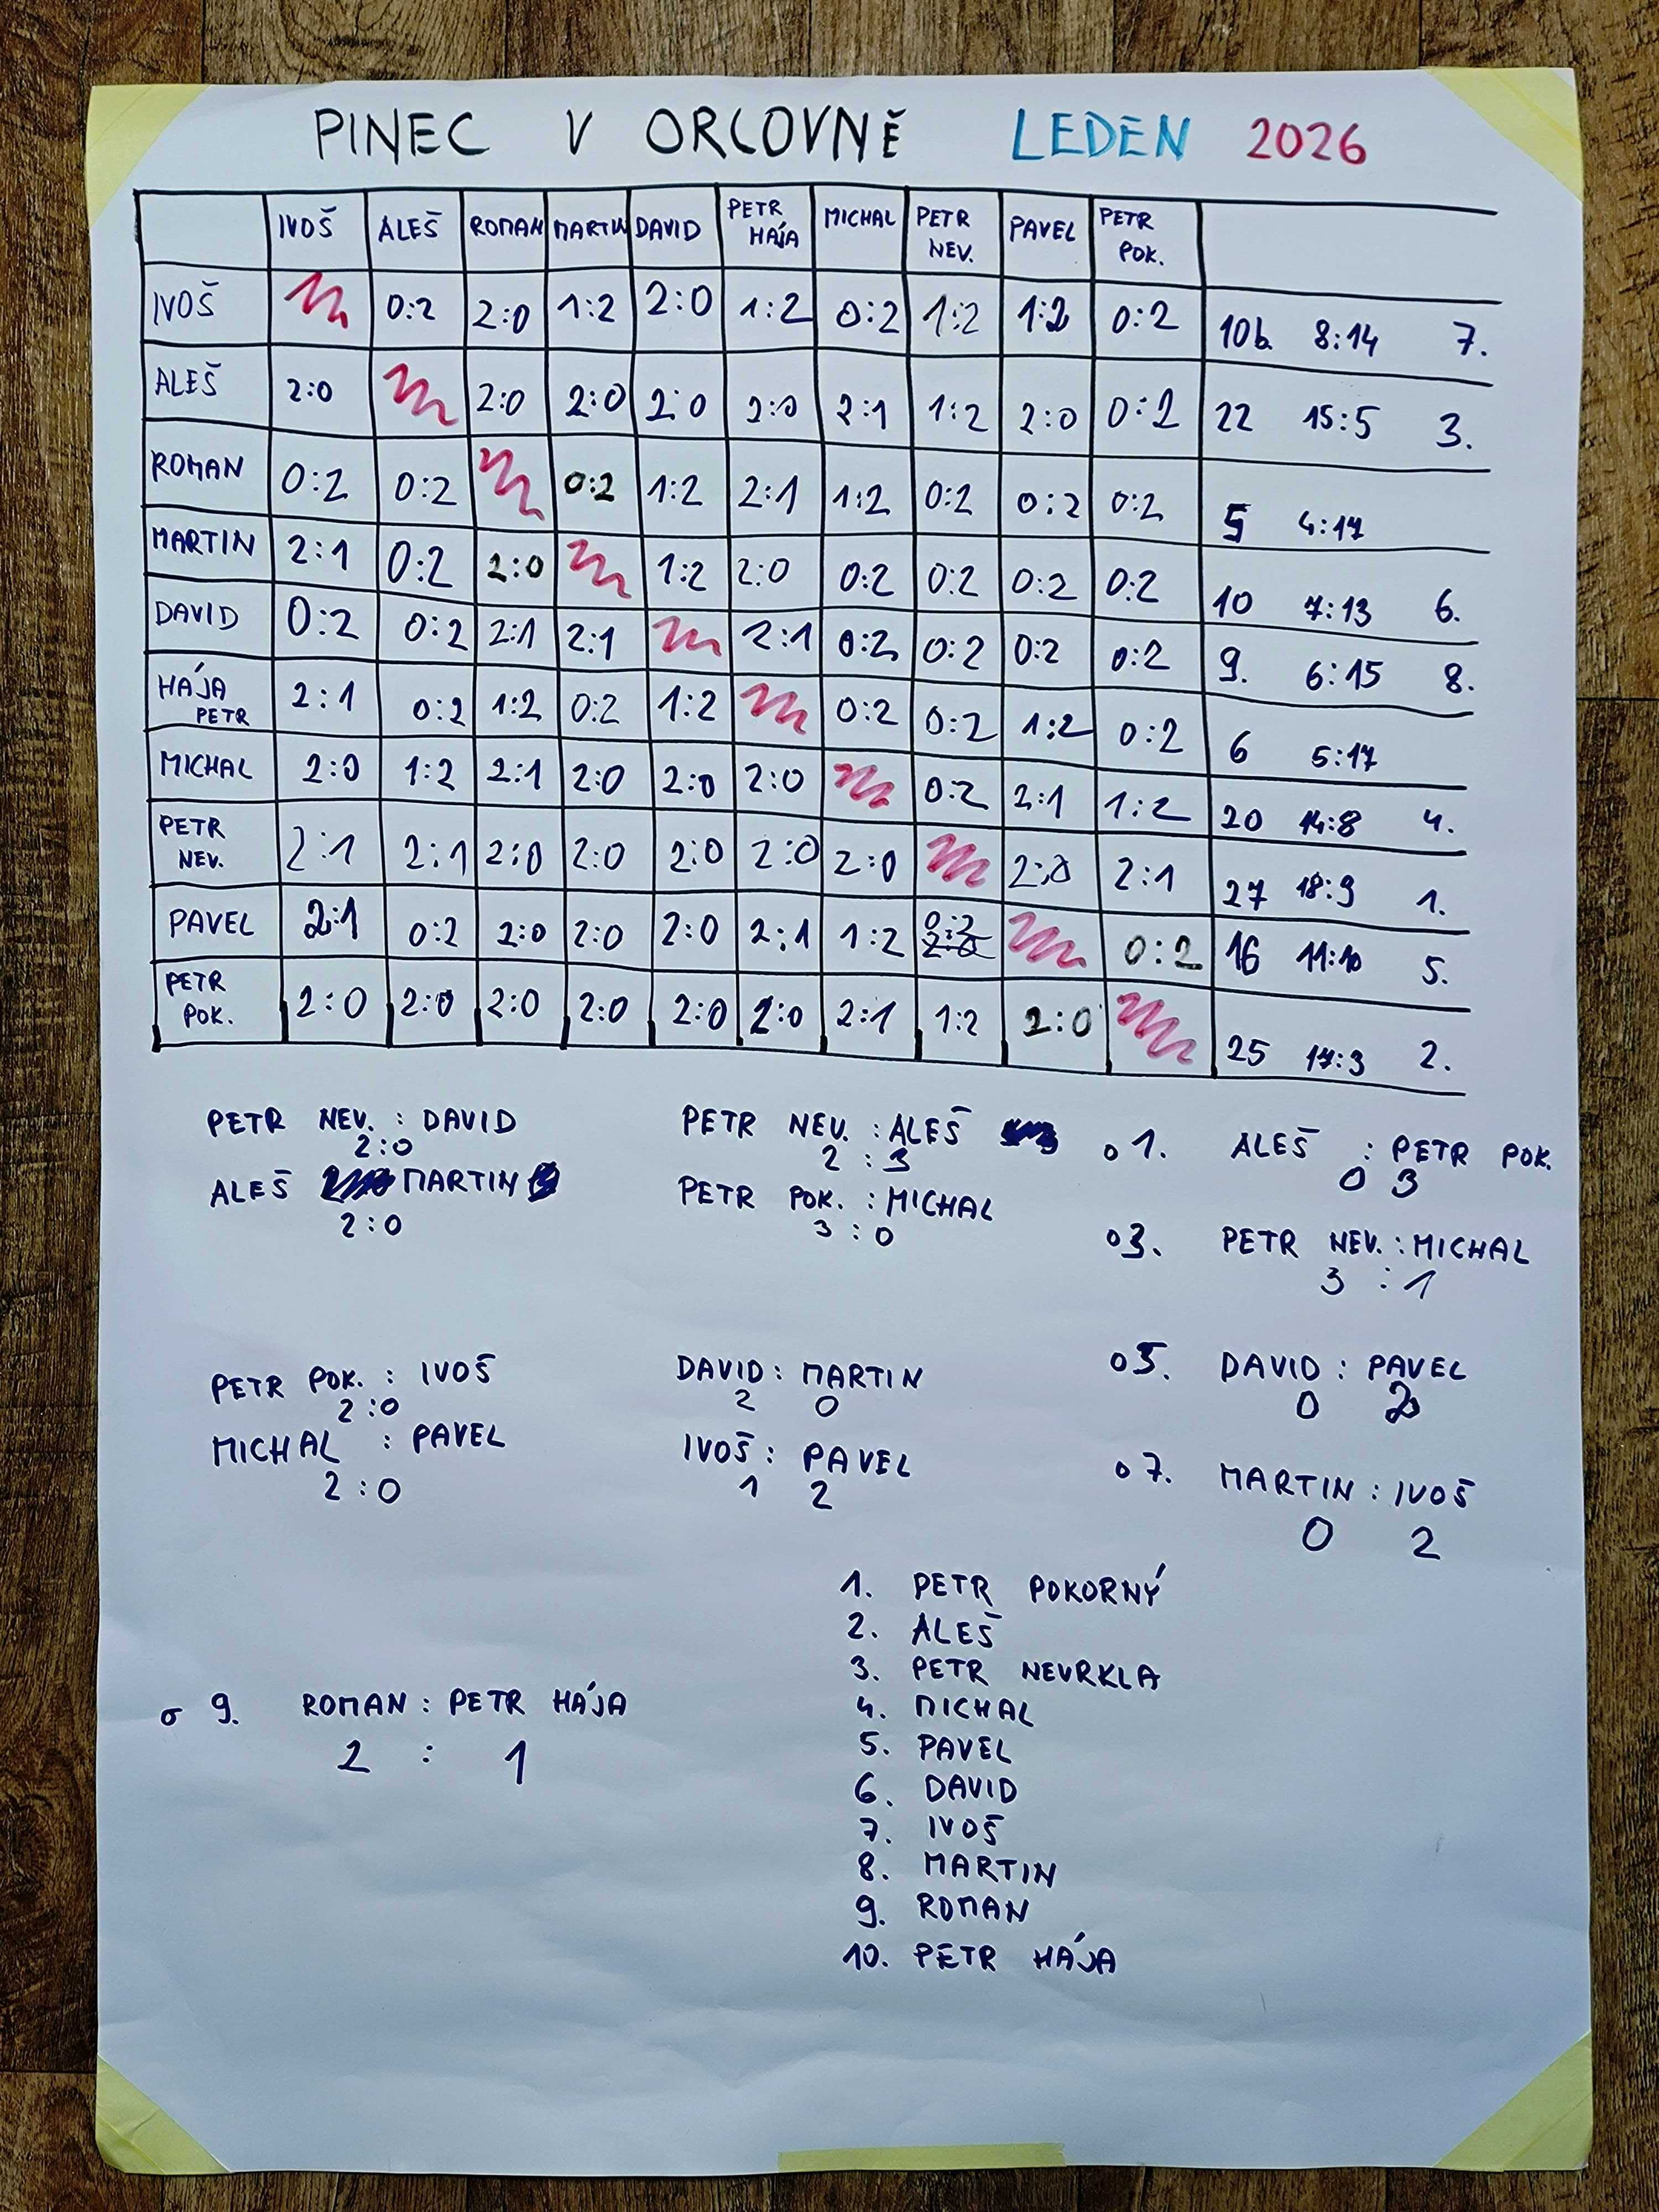 PINEC V ORLOVNĚ LEDEN 2026
IVOŠ ALEŠ ROMAN MARTIN DAVID PETR HÁJA MICHAL PETR NEV. PAVEL PETR POK.
IVOŠ 0:2 2:0 1:2 2:0 1:2 0:2 1:2 1:2 0:2 10b. 8:14 7.
ALEŠ 2:0 2:0 2:0 2:0 2:0 2:1 1:2 2:0 0:2 22 15:5 3.
ROMAN 0:2 0:2 0:2 1:2 2:1 1:2 0:2 0:2 0:2 5 4:17
MARTIN 2:1 0:2 2:0 1:2 2:0 0:2 0:2 0:2 0:2 10 7:13 6.
DAVID 0:2 0:2 2:1 2:1 2:1 0:2 0:2 0:2 0:2 9. 6:15 8.
HÁJA PETR 2:1 0:2 1:2 0:2 1:2 0:2 0:2 1:2 0:2 6 5:17
MICHAL 2:0 1:2 2:1 2:0 2:0 2:0 0:2 2:1 1:2 20 14:8 4.
PETR NEV. 2:1 2:1 2:0 2:0 2:0 2:0 2:0 2:0 2:1 27 18:3 1.
PAVEL 2:1 0:2 2:0 2:0 2:0 2:1 1:2 0:2 0:2 16 11:10 5.
PETR POK. 2:0 2:0 2:0 2:0 2:0 2:0 2:1 1:2 2:0 25 17:3 2.
PETR NEV. : DAVID
2:0
ALEŠ MARTIN
2:0
PETR NEV. : ALEŠ
2 : 3
PETR POK. : MICHAL
3 : 0
o 1. ALEŠ : PETR POK.
0 3
o 3. PETR NEV. : MICHAL
3 : 1
PETR POK. : IVOŠ
2:0
MICHAL : PAVEL
2:0
DAVID : MARTIN
2 0
IVOŠ : PAVEL
1 2
o 5. DAVID : PAVEL
0 2
o 7. MARTIN : IVOŠ
0 2
o 9. ROMAN : PETR HÁJA
2 : 1
1. PETR POKORNÝ
2. ALEŠ
3. PETR NEVRKLA
4. MICHAL
5. PAVEL
6. DAVID
7. IVOŠ
8. MARTIN
9. ROMAN
10. PETR HÁJA